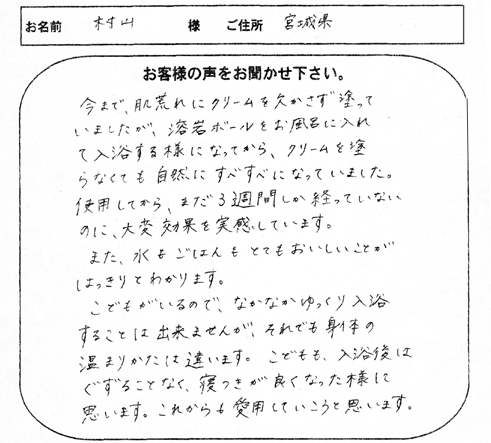 お名前 村山 様 ご住所 宮城県
お客様の声をお聞かせ下さい。
今まで、肌荒れにクリームを欠かさず塗って
いましたが、溶岩ボールをお風呂に入れ
て入浴する様になってから、クリームを塗
らなくても自然にすべすべになっていました。
使用してから、まだ3週間しか経っていない
のに、大変効果を実感しています。
また、水もごはんもとてもおいしいことが
はっきりとわかります。
こどもがいるので、なかなかゆっくり入浴
することは出来ませんが、それでも身体の
温まりかたは違います。こどもも、入浴後は
ぐずることなく、寝つきが良くなった様に
思います。これからも愛用していこうと思います。